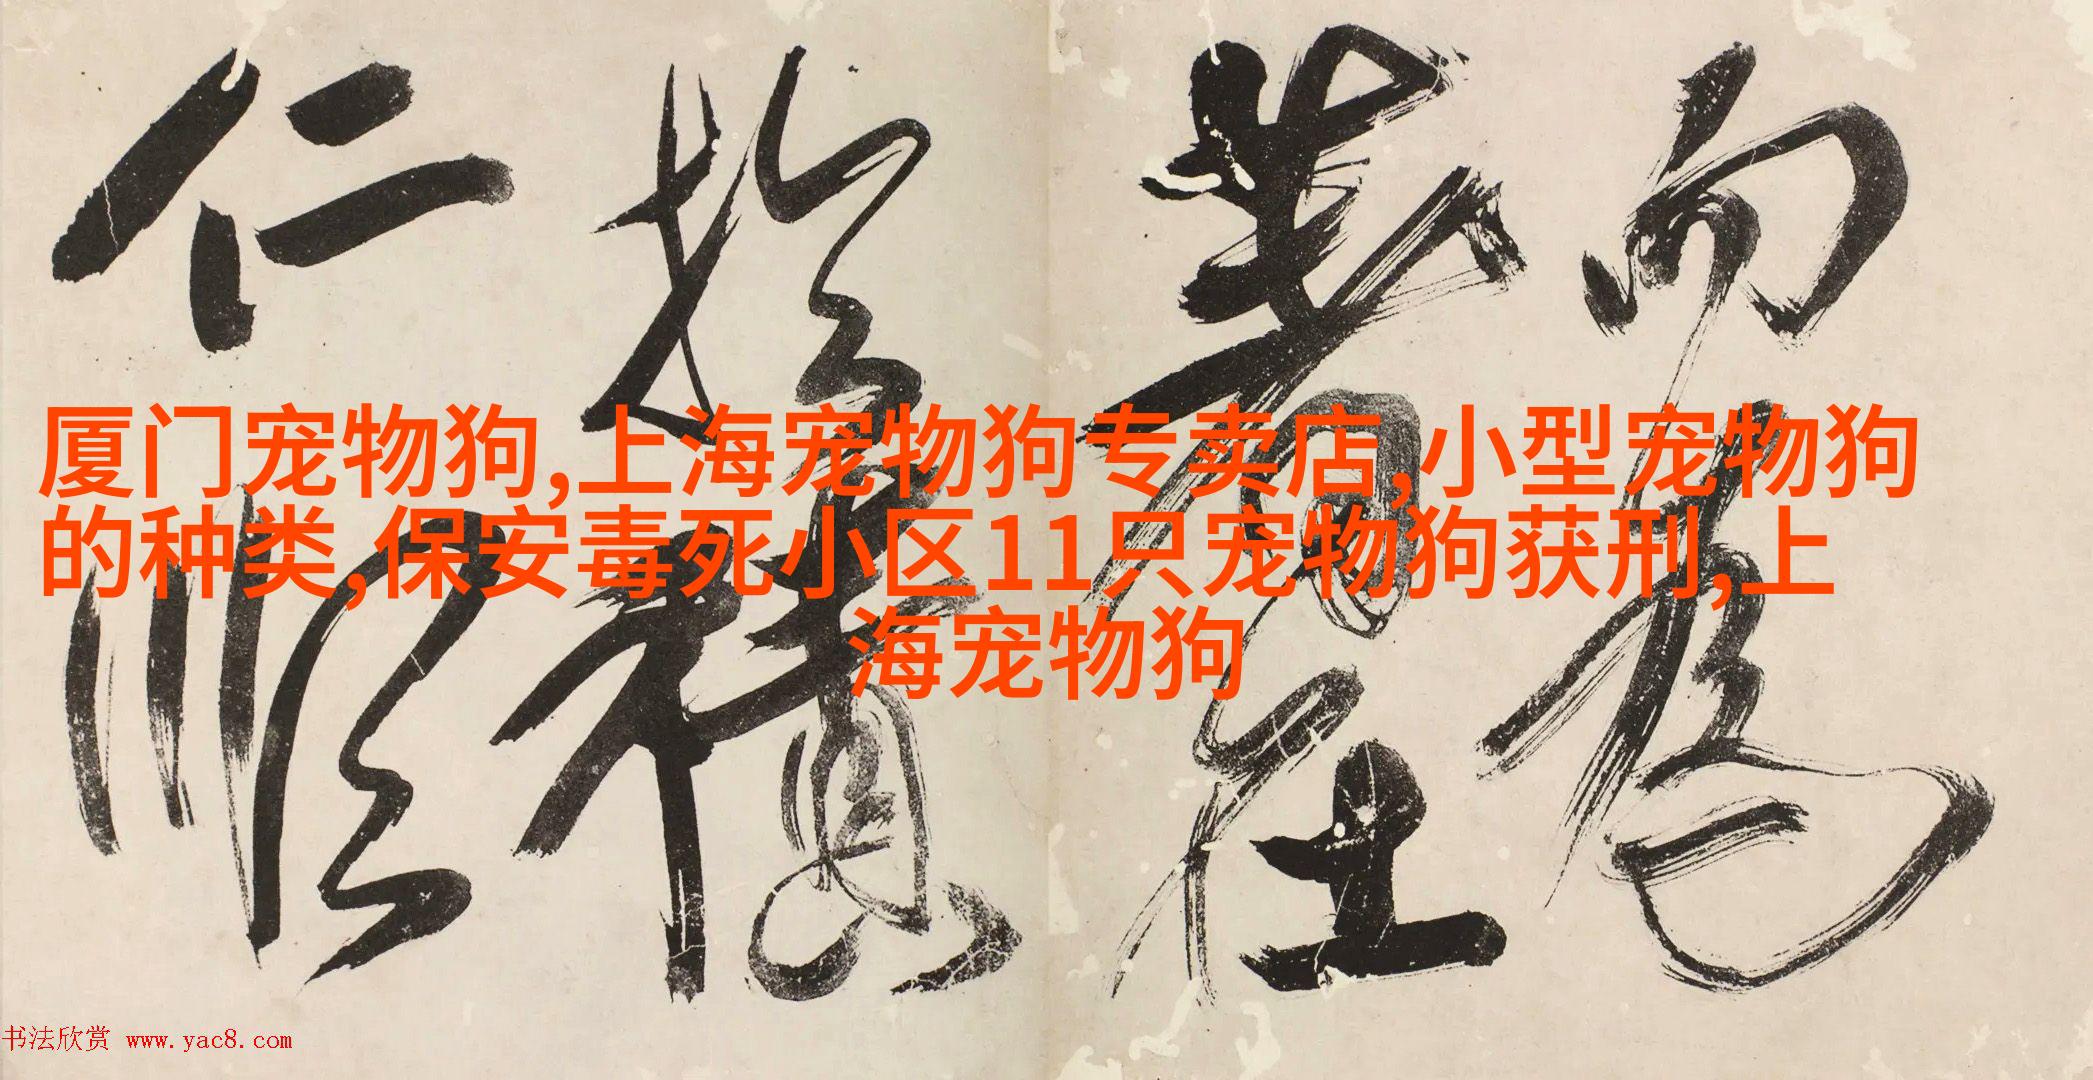 厦门宠物狗,上海宠物狗专卖店,小型宠物狗
的种类,保安毒死小区11只宠物狗获刑,上
海宠物狗
而为
著
在
於
积
仁
顺
书法欣赏 www.yac8.com